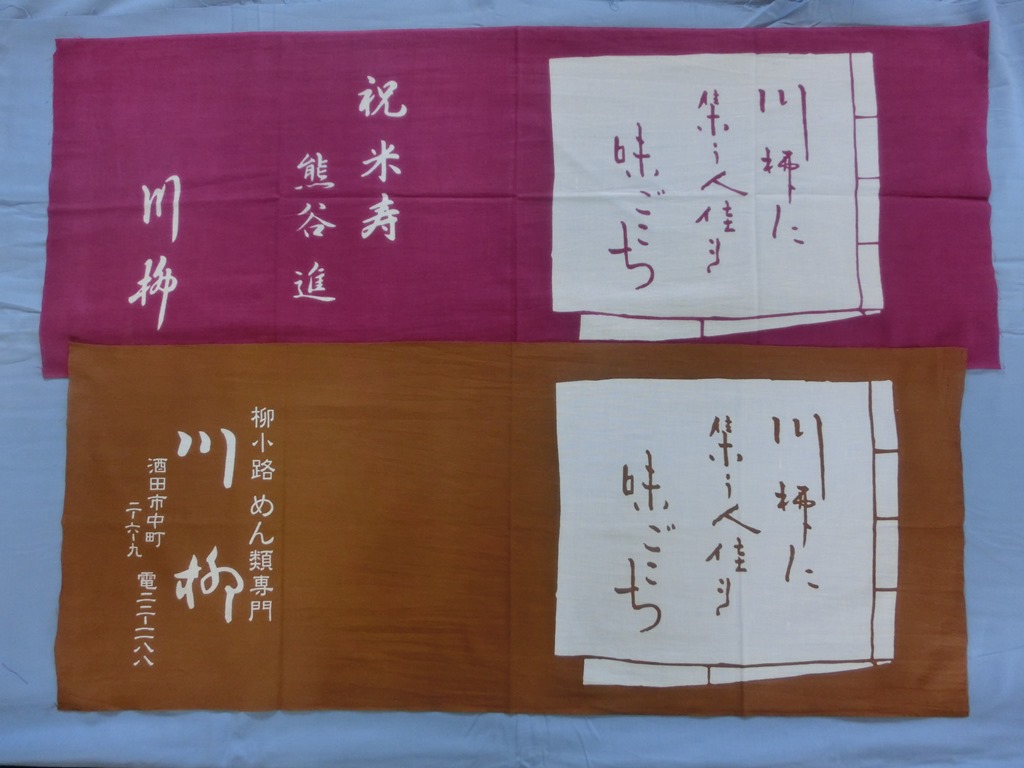 川柳に
集う人佳き
味ごこち
祝 米寿
熊谷 進
川柳
川柳に
集う人佳き
味ごこち
柳小路 めん類専門
川柳
酒田市中町
二-六-九 電二二-二一八八